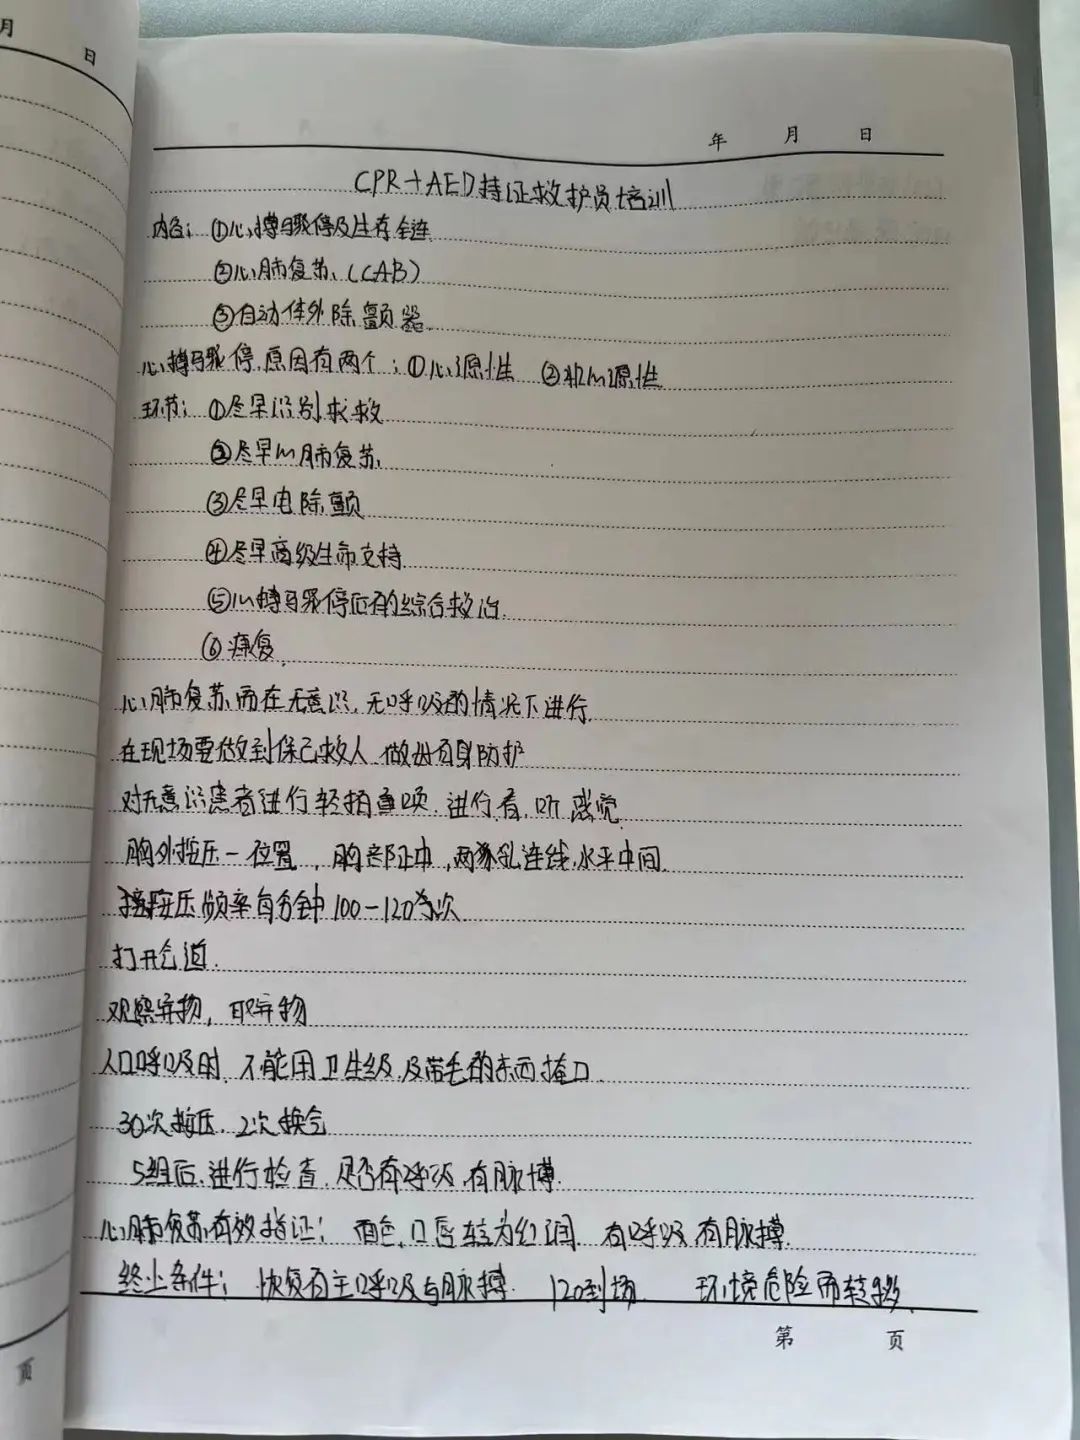 月 日
年 月 日
CPR+AED持证救护员培训
内容：①心搏骤停及生存链
②心肺复苏（CAB）
③自动体外除颤器
心搏骤停.原因有两个：①心源性 ②非心源性
环节：①尽早识别求救
②尽早心肺复苏
③尽早电除颤
④尽早高级生命支持
⑤心搏骤停后的综合救治.
⑥康复.
心肺复苏需在无意识，无呼吸的情况下进行.
在现场要做到保己救人 做好自身防护
对无意识患者进行轻拍重唤.进行看.听.感觉
胸外按压-位置，胸部正中，两乳连线水平中间.
按压频率每分钟100-120次
打开气道.
观察异物，取异物
人口呼吸时.不能用卫生纸及带毛的东西掩口
30次按压.2次换气
5组后.进行检查.是否有呼吸.有脉搏.
心肺复苏有效指证：面色.口唇转为红润.有呼吸 有脉搏.
终止条件：恢复自主呼吸与脉搏. 120到场. 环境危险需转移.
第 页
页